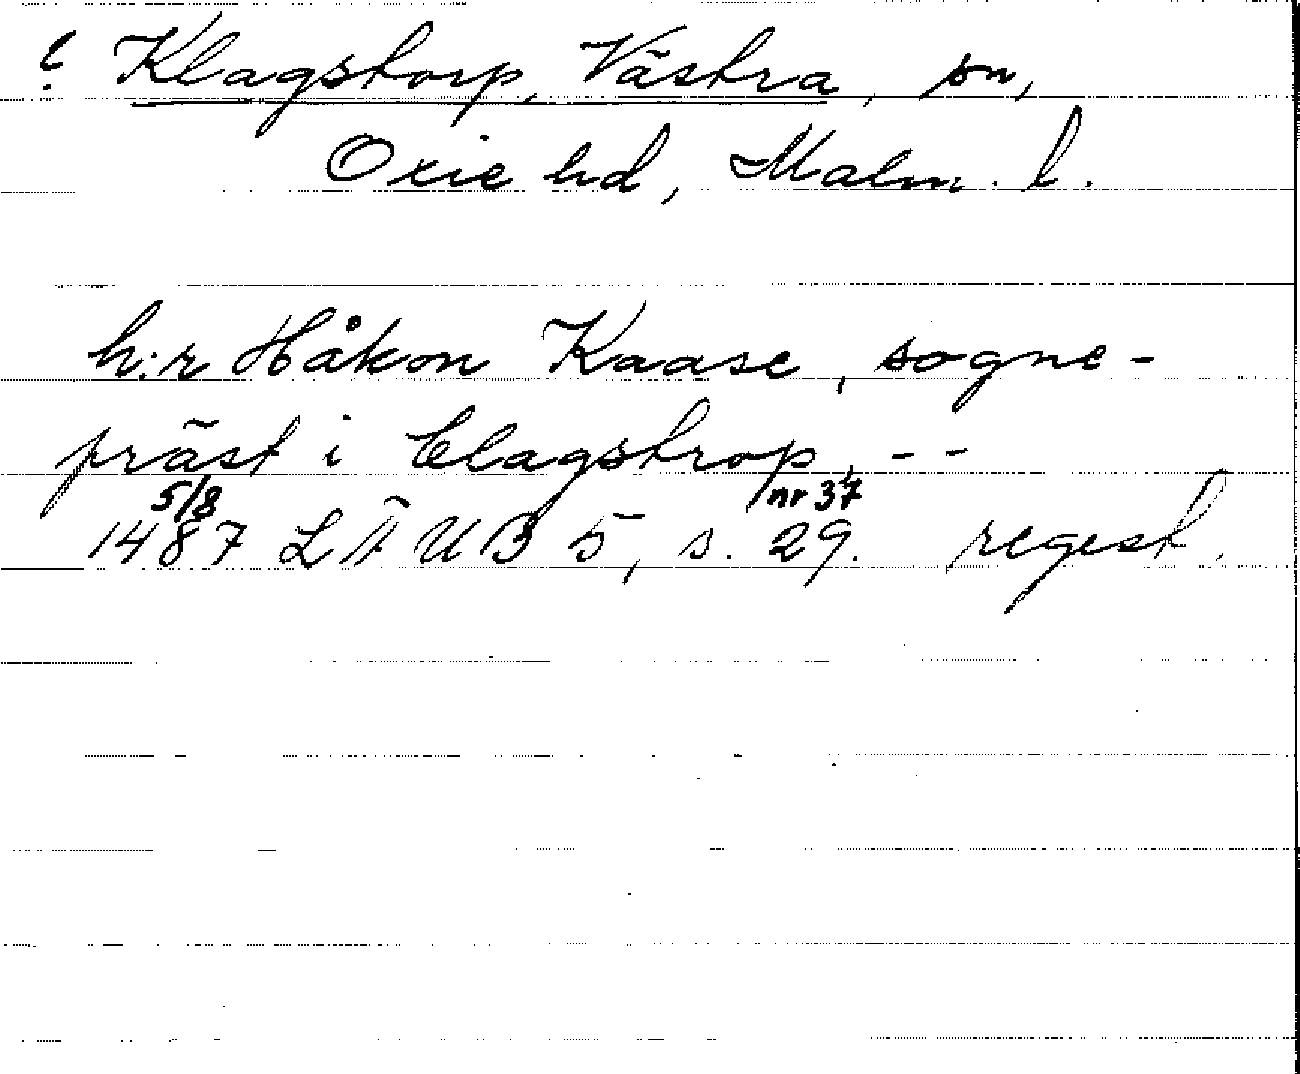 ? Klagstorp, Västra, sn,
Oxie hd, Malm. l.
h:r Håkon Kaase, sogne-
präst i Clagstrop, - -
5/8 nr 37
1487 LÄUB 5, s. 29. regest.